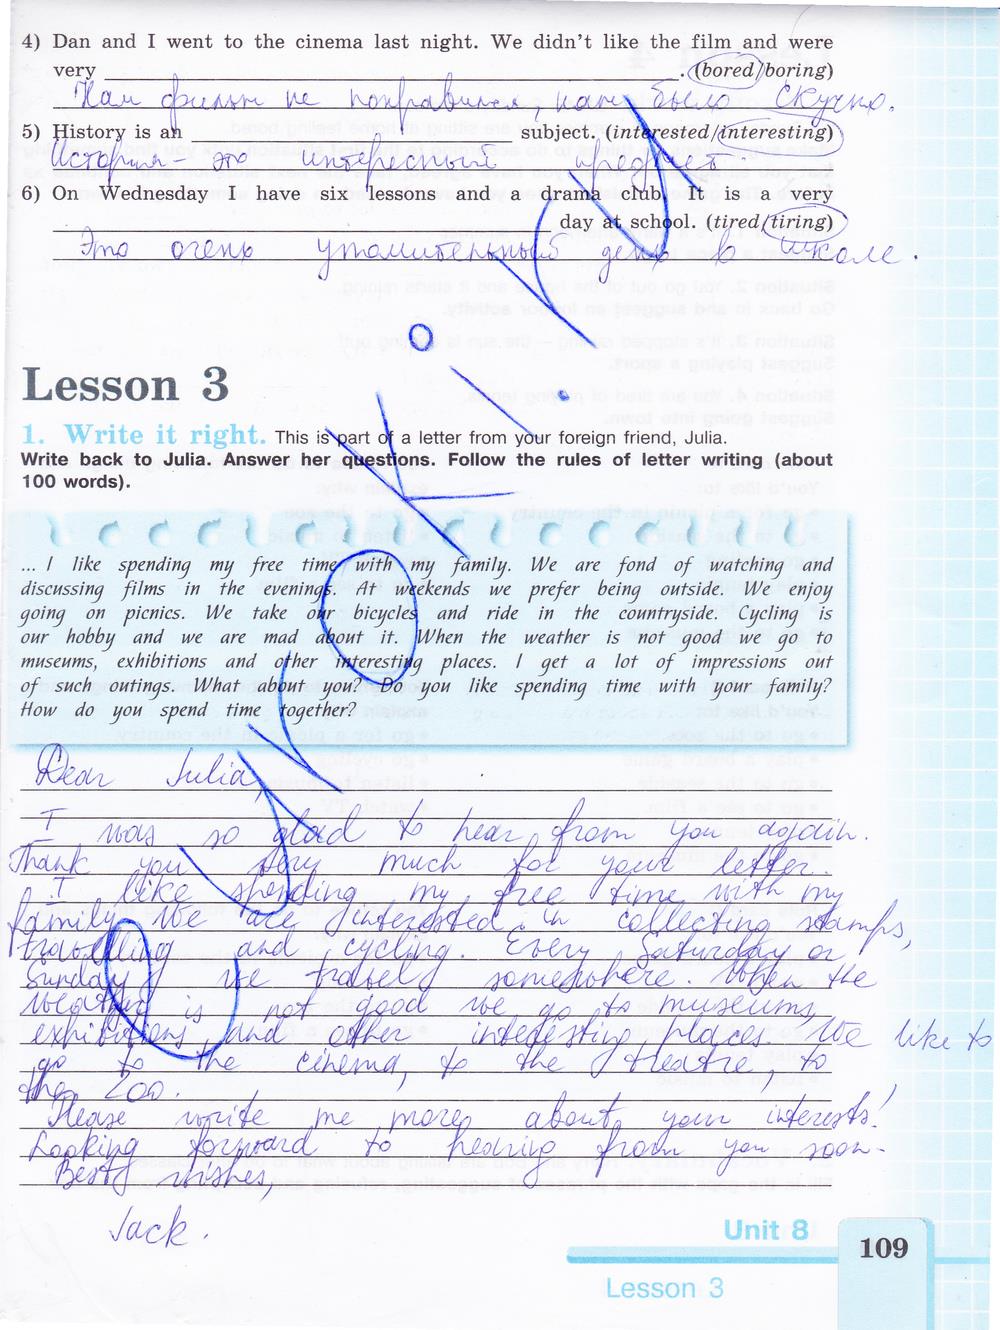 4) Dan and I went to the cinema last night. We didn't like the film and were
very ____ . (bored/boring)
Нам фильм не понравился, нам было скучно.
5) History is an ____ subject. (interested/interesting)
История - это интересный предмет
6) On Wednesday I have six lessons and a drama club. It is a very
____ day at school. (tired/tiring)
Это очень утомительный день в школе.
Lesson 3
1. Write it right. This is part of a letter from your foreign friend, Julia.
Write back to Julia. Answer her questions. Follow the rules of letter writing (about
100 words).
... I like spending my free time with my family. We are fond of watching and
discussing films in the evenings. At weekends we prefer being outside. We enjoy
going on picnics. We take our bicycles and ride in the countryside. Cycling is
our hobby and we are mad about it. When the weather is not good we go to
museums, exhibitions and other interesting places. I get a lot of impressions out
of such outings. What about you? Do you like spending time with your family?
How do you spend time together?
Dear Julia
I was so glad to hear from you again.
Thank you very much for your letter.
I like spending my free time with my
family. We are interested in collecting stamps,
travelling and cycling. Every Saturday or
Sunday we travel somewhere. When the
weather is not good we go to museums,
exhibitions and other interesting places. We like to
go to the cinema, to the theatre, to
the zoo.
Please write me more about your interests!
Looking forward to hearing from you soon.
Best wishes,
Jack.
Unit 8
109
Lesson 3